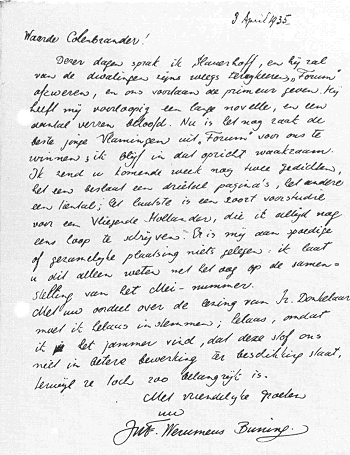 3 April 1935.
Waarde Colenbrander!
Dezer dagen sprak ik Slauerhoff, en hij zal
van de dwalingen zijns weegs terugkeeren, "Forum"
afzweren, en ons voortaan de primeur geven. Hij
heeft mij voorloopig een lange novelle, en een
aantal verzen beloofd. Nu is het nog zaak de
beste jonge Vlamingen uit "Forum" voor ons te
winnen; ik blijf in dat opzicht waakzaam.
Ik zend u komende week nog twee gedichten,
het een beslaat een drietal pagina's, het andere
een tiental; het laatste is een soort voorstudie
voor een Vliegende Hollander, die ik altijd nog
eens hoop te schrijven. Er is mij aan spoedige
of gezamelijke plaatsing niets gelegen: ik laat
u dit alleen weten met het oog op de samen-
stelling van het Mei-nummer.
Met uw oordeel over de lezing van Ir. Donkelaar
moet ik helaas instemmen; helaas, omdat
ik het jammer vind, dat deze stof ons
niet in betere bewerking ter beschikking staat,
terwijl ze toch zoo belangrijk is.
Met vriendelijke groeten
uw
JWF. Werumeus Buning.